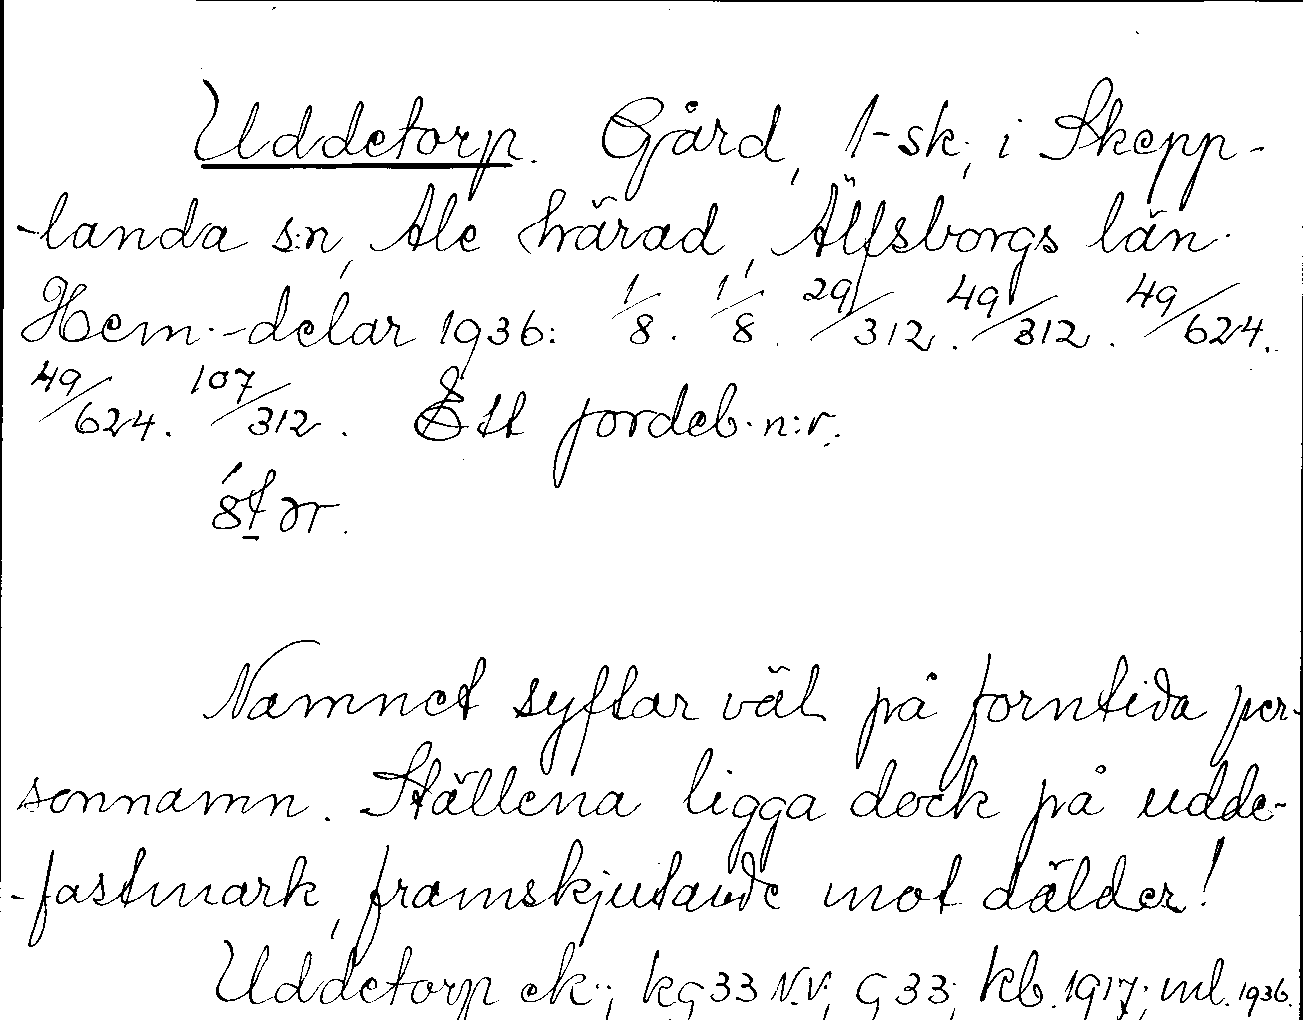 Uddetorp. Gård, 1-sk., i Skepp-
-landa s:n, Ale härad, Älfsborgs län.
Hem.-delar 1936: 1/8. 1/8. 29/312. 49/312. 49/624.
49/624. 107/312. Ett jordeb. n:r.
Namnet syftar väl på forntida per-
sonnamn. Ställena ligga dock på udde-
-fastmark, framskjutande mot dälder!
Uddetorp ek.; kg 33 N.V; G 33; kb. 1917; ml. 1936.